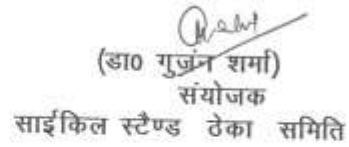 (डा0 गुर्जन शर्मा)
संयोजक
साईकिल स्टैण्ड ठेका समिति